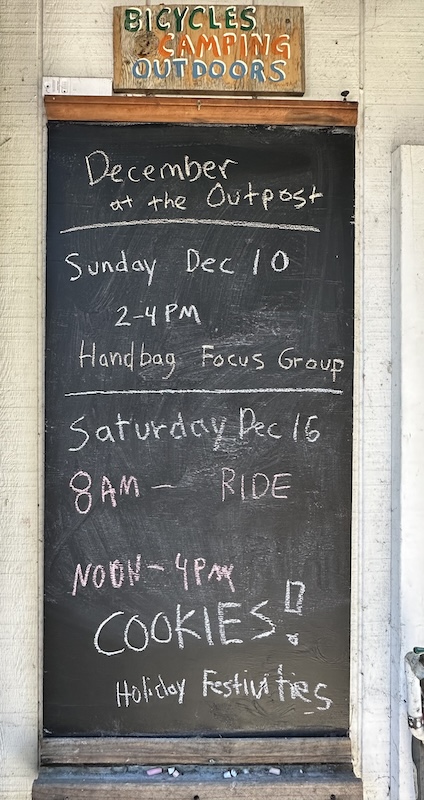 BICYCLES
CAMPING
OUTDOORS
December
at the Outpost
Sunday Dec 10
2-4 PM
Handbag Focus Group
Saturday Dec 16
8AM — RIDE
NOON - 4PM
COOKIES!
Holiday Festivities